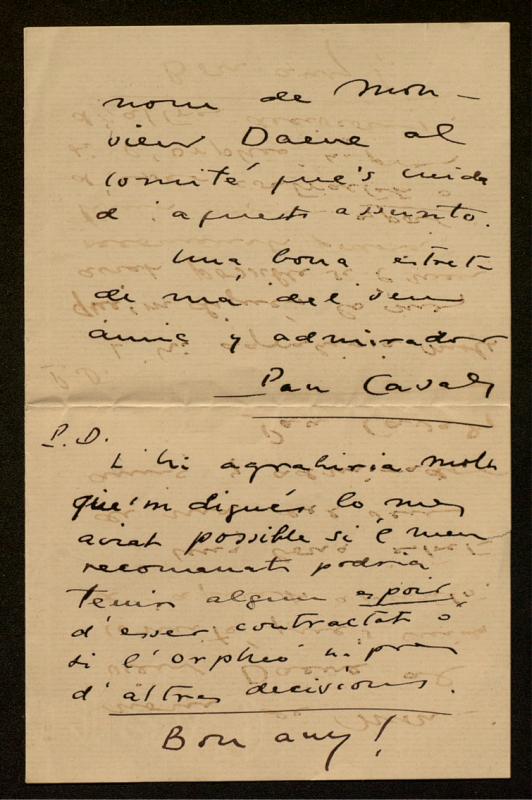 nom de Mon-
sieur Daene al
Comité que's cuida
d'aquest assunto.
Una bona estret-
de má del seu
amic y admirador
Pau Casals
P.D.
L'hi agrahiria molt
que'm digués lo mes
aviat possible si l meu
recomenat podria
tenir algun espoir
d'esser contractat ó
si l'Orpheó ha pres
d'altres decisions.
Bon any!